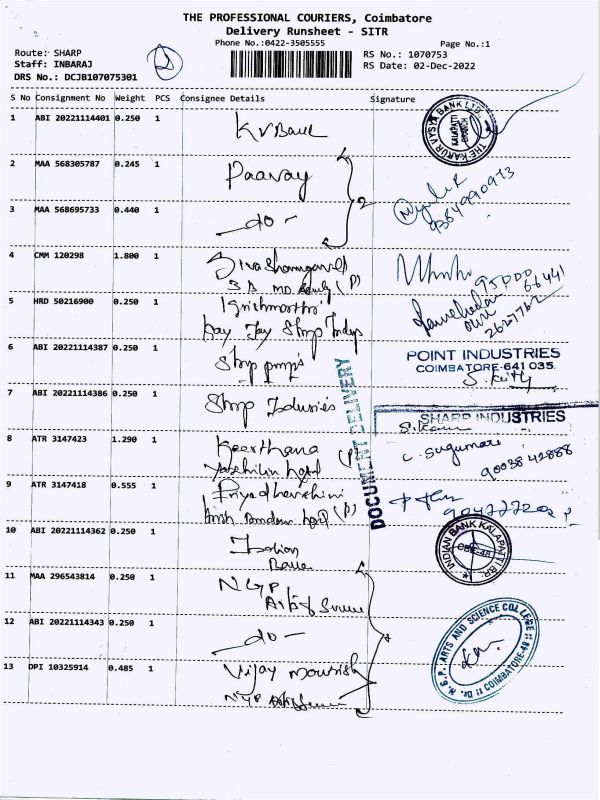 THE PROFESSIONAL COURIERS, Coimbatore
Delivery Runsheet - SITR
Phone No.:0422-3505555
Page No.:1
Route: SHARP
Staff: INBARAJ
DRS No.: DCJB107075301
2
RS No.: 1070753
RS Date: 02-Dec-2022
S No Consignment No Weight PCS Consignee Details Signature
1 ABI 20221114401 0.250 1 KVBank
THE KARUR VYSYA BANK LTD. KALAPATTI BRANCH
2 MAA 568305787 0.245 1 Paavay
2
9384990973
3 MAA 568695733 0.440 1 -do-
4 CMM 120298 1.800 1 Sivashanmugavel
(P)
95000 66441
5 HRD 50216900 0.250 1 Krishmoorthi
Kay Jay Sharp Indus
2627762
6 ABI 20221114387 0.250 1 Sharp pumps
POINT INDUSTRIES
COIMBATORE-641 035.
7 ABI 20221114386 0.250 1 Sharp Industries
SHARP INDUSTRIES
DOCUMENT DELIVERY
8 ATR 3147423 1.290 1 Keerthana
(P)
C. Sugumar
90038 42888
9 ATR 3147418 0.555 1 Priyadharshini
(P)
10 ABI 20221114362 0.250 1 Indian
Bank
INDIAN BANK KALAPATTI BR.
CBE-48
11 MAA 296543814 0.250 1 NGP
Arts & Science
12 ABI 20221114343 0.250 1 -do-
Dr. N. G. P. ARTS AND SCIENCE COLLEGE :: COIMBATORE-48 ::
13 DPI 10325914 0.485 1 Vijay Mourish
NGP Arts Science